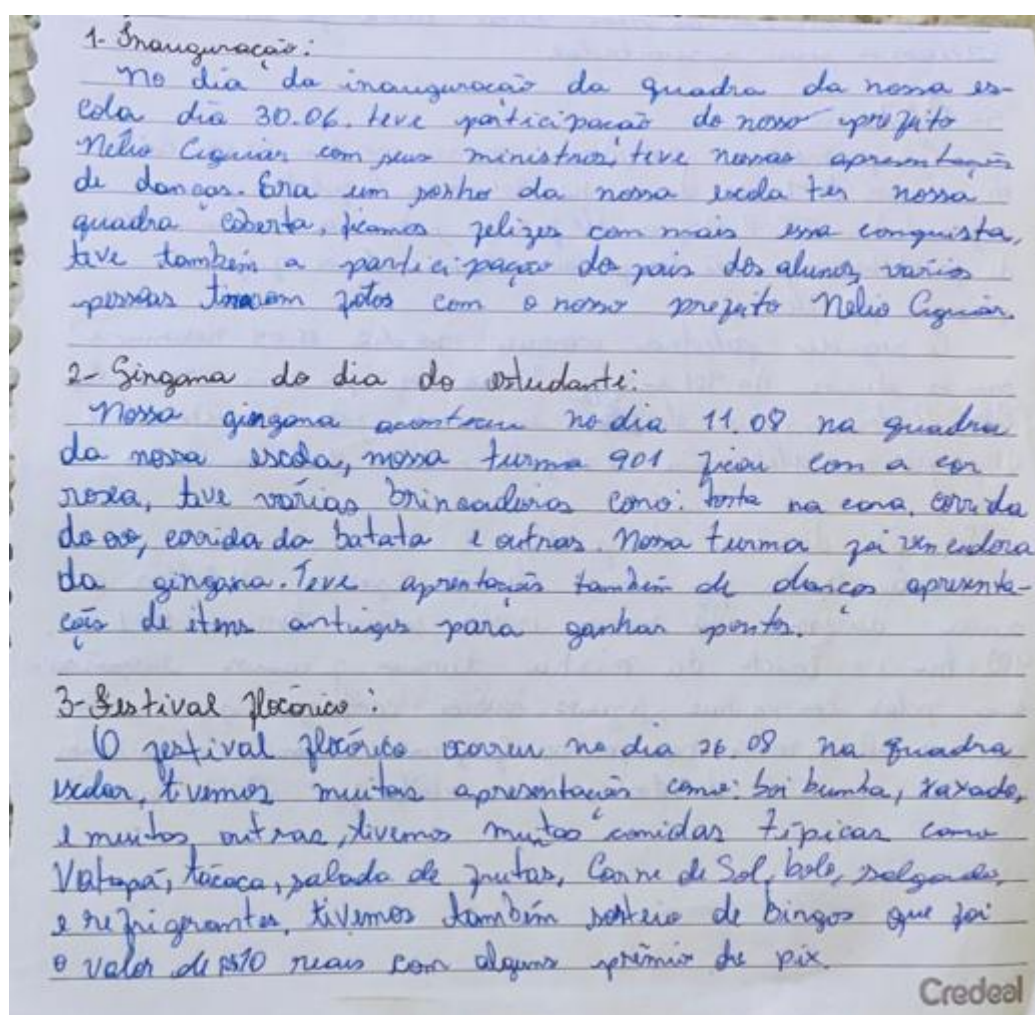 1- Inauguração:
No dia da inauguração da quadra da nossa es-
cola dia 30.06. teve participação do nosso prefeito
Nélio Aguiar com seus ministros, teve nossas apresentações
de danças. Era um sonho da nossa escola ter nossa
quadra coberta, ficamos felizes com mais essa conquista,
teve também a participação do pais dos alunos, varios
pessoas tiraram fotos com o nosso prefeito Nelio Aguiar.
2- Gingama do dia do estudante:
Nossa gingana aconteceu no dia 11.08 na quadra
da nossa escola, nossa turma 901 ficou com a cor
roxa, teve várias brincadeiras como: torta na cara, corrida
do ovo, corrida da batata e outras. Nossa turma foi vencedora
da gingana. Teve aprentação também de danças apresenta-
ção de itens antigos para ganhar pontos.
3- Festival flocórico:
O festival flocórico ocorreu no dia 26.08 na quadra
escolar, tivemos muitas apresentações como: boi bumba, xaxado,
e muitos outras, tivemos muitas comidas típicas como
Vatapá, tacaca, salada de frutas, Carne de Sol, bolo, salgado,
e refrigerantes, tivemos também sorteio de bingos que foi
o valor de R$10 reais com alguns prêmio de pix.
Credeal